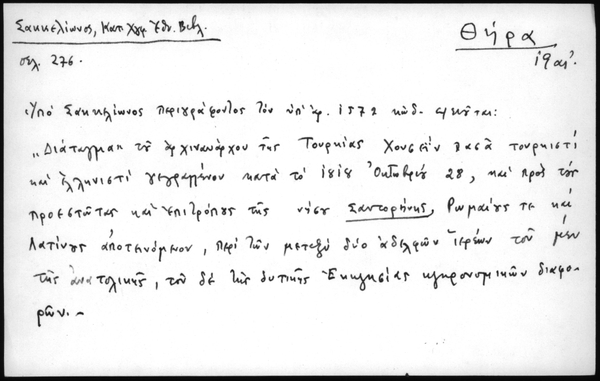 Σακκελίωνος, Κατ. Χγφ. Εθν. Βιβλ.
Θήρα
σελ. 276.
19 αι.
Υπό Σακκελίωνος περιγράφοντος τον υπ' αρ. 1572 κώδ. σημειούται:
"Διάταγμα του αρχιναυάρχου της Τουρκίας Χουσεΐν πασά τουρκιστί
και ελληνιστί γεγραμμένον κατά το 1818 Οκτωβρίου 28, και προς τους
προεστώτας και επιτρόπους της νήσου Σαντορήνης, Ρωμαίους τε και
Λατίνους αποτεινόμενον, περί των μεταξύ δύο αδελφών ιερέων του μεν
της ανατολικής, του δε της δυτικής Εκκλησίας κληρονομικών διαφο-
ρών.-